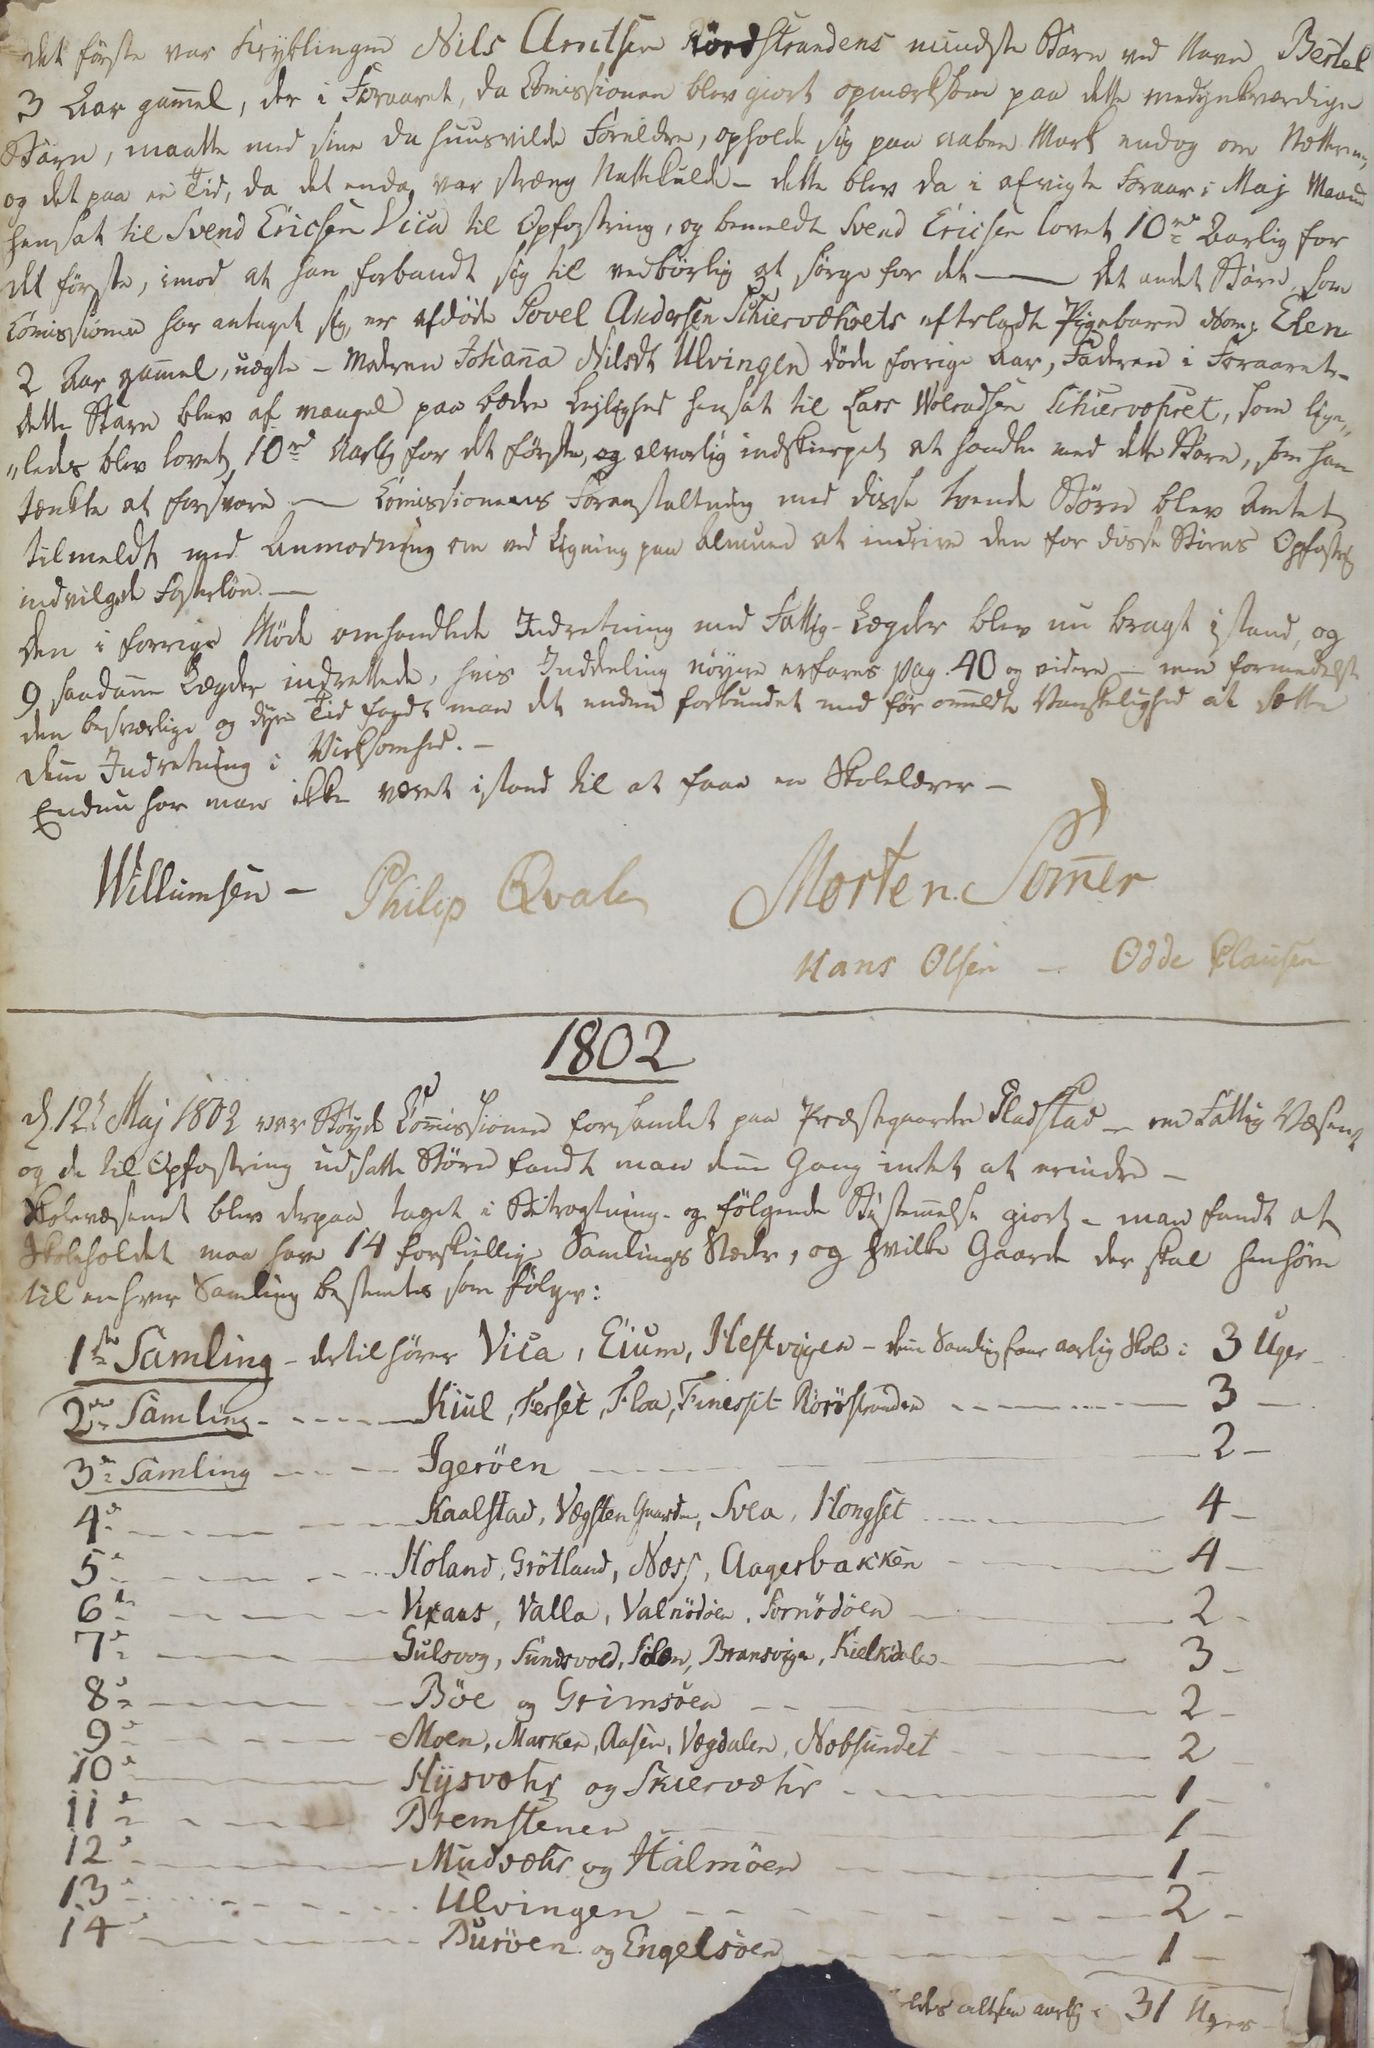 det förste var Kryblingen Nils Arntsen Röröstrandens mindste Barn ved Navn Bertel
3 Aar gam̄el, der i Foraaret, da Com̄issionen blev giort opmærksom paa dette medynkværdige
Barn, maatte med sine da huusvilde Forældre, opholde sig paa aaben Mark endog om Nætterne,
og det paa en Tid, da det endog var stræng Nattekulde – dette blev da i afvigte Foraar i Maj Maaned
hensat til Svend Ericsen Vica til Opfostring, og bemeldte Svend Ericsen lovet 10 rd Aarlig for
det förste, imod at han forbandt sig til vedbörlig at sörge for det — Det andet Barn, som
Com̄issionen har antaget sig, er afdöde Povel Andersen Schiervæhrets efterladte Pigebarn Nom: Elen
2 Aar gam̄el, uægte – Moderen Johan̄a Nilsdt Ulvingen döde forrige Aar, Faderen i Foraaret –
dette Barn blev af mangel paa bedre Leilighed hensat til Lars Wolradsen Schiervæhret, som lige„
„ledes blev lovet 10 rd Aarlig for det förste, og alvorlig indskierpet at handle med dette Barn, som han
tænkte at forsvare — Com̄issionens Foranstaltning med disse tvende Börn blev Amtet
tilmeldt med Anmodning om ved Ligning paa Almuen at inddrive den for disse Börns Opfostring
indvilgede Fosterlön. —
Den i forrige Möde omhandlede Indretning med Fattig-Lægder blev nu bragt i stand, og
9 saadanne Lægder indrettede, hvis Inddeling nöyere erfares pag. 40 og videre – men formedelst
den besværlige og dyre Tid fandt man det endnu forbundet med för om̄eldte Vanskelighed at sætte
denne Indretning i Virksomhed. –
Endnu har man ikke været i stand til at faae en Skolelærer –
Willumsen – Philip Qvale Morten Som̄er
Hans Olsen – Odde Clausen
1802
d 12te Maj 1802 var Bøyde Com̄issionen forsamlet paa Præstegaarden Aladstad – om Fattig Væsenet
og de til Opfostring udsatte Börn fandt man denne Gang intet at erindre –
Skolevæsenet blev derpaa taget i Betragtning – og fölgende Bestem̄else giort – man fandt at
Skoleholdet maa have 14 forskiellige Samlings Stæder, og hvilke Gaarde der skal henhöre
til enhver Samling bestemtes som fölger:
1ste Samling – dertil hörer Vica, Eium, Hestvigen – denne Samling faaer aarlig Skole i 3 Uger –
2den Samling – Kiul, Ferset, Floa, Finesset Röröstranden – 3 –
3die Samling – Igeröen – 2 –
4de – Kaalstad, Vægsten Gaarden, Svea, Hongset – 4 –
5te – Holand, Grötland, Næss, Aagerbakken – 4 –
6te – Vixaas, Valla, Valnödöen, Sornödöen – 2 –
7de – Gulsvog, Sundsvold, Silen, Bransvigen, Kielkidalen – 3 –
8de – Böe og Grimsöen – 2 –
9de – Moen, Marken, Aasen, Vægdalen, Nobsundet – 2 –
10de – Hysvæhr og Skiervæhr – 1 –
11te – Bremstenen – 1 –
12te – Mudvæhr og Halmöen – 1 –
13de – Ulvingen – 2 –
14de – Buröen og Engelsöen – 1 –
ldes altsaa aarlig i 31 Uger –